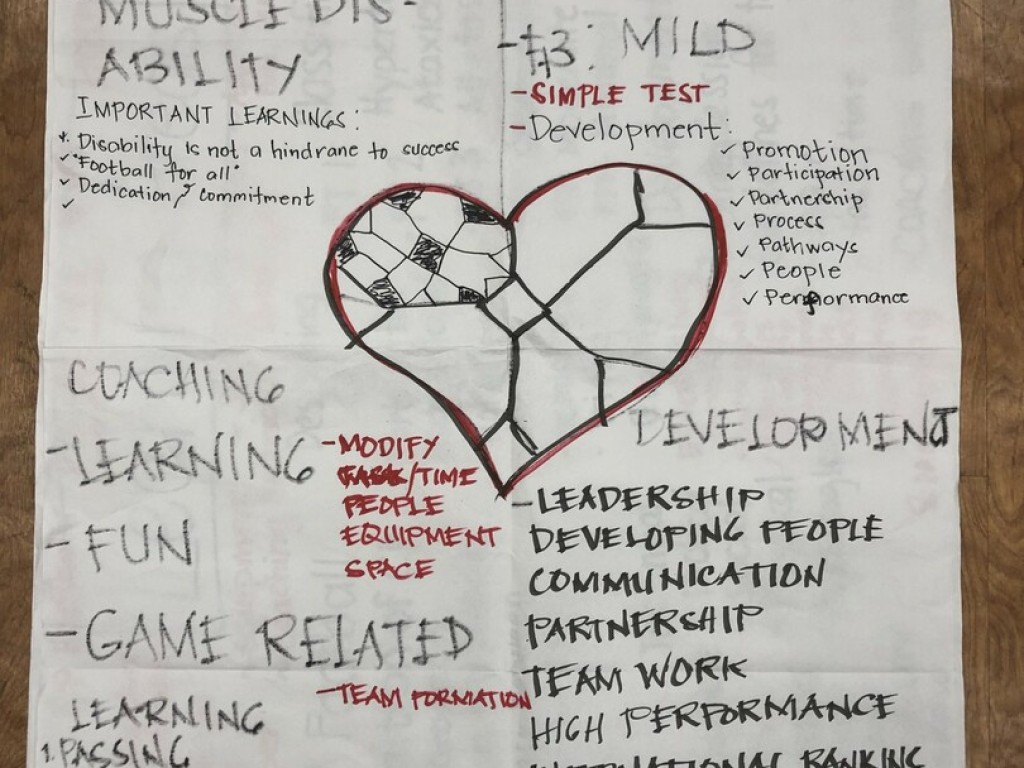 MUSCLE DIS-
ABILITY
IMPORTANT LEARNINGS:
* Disability is not a hindrane to success
✓ "Football for all"
✓ Dedication & commitment
✓
: MILD
- SIMPLE TEST
- Development:
✓ Promotion
✓ Participation
✓ Partnership
✓ Process
✓ Pathways
✓ People
✓ Performance
COACHING
- LEARNING
- FUN
- GAME RELATED
LEARNING
1. PASSING
- MODIFY
/TIME
PEOPLE
EQUIPMENT
SPACE
- TEAM FORMATION
DEVELOPMENT
- LEADERSHIP
DEVELOPING PEOPLE
COMMUNICATION
PARTNERSHIP
TEAM WORK
HIGH PERFORMANCE
INTERNATIONAL RANKING